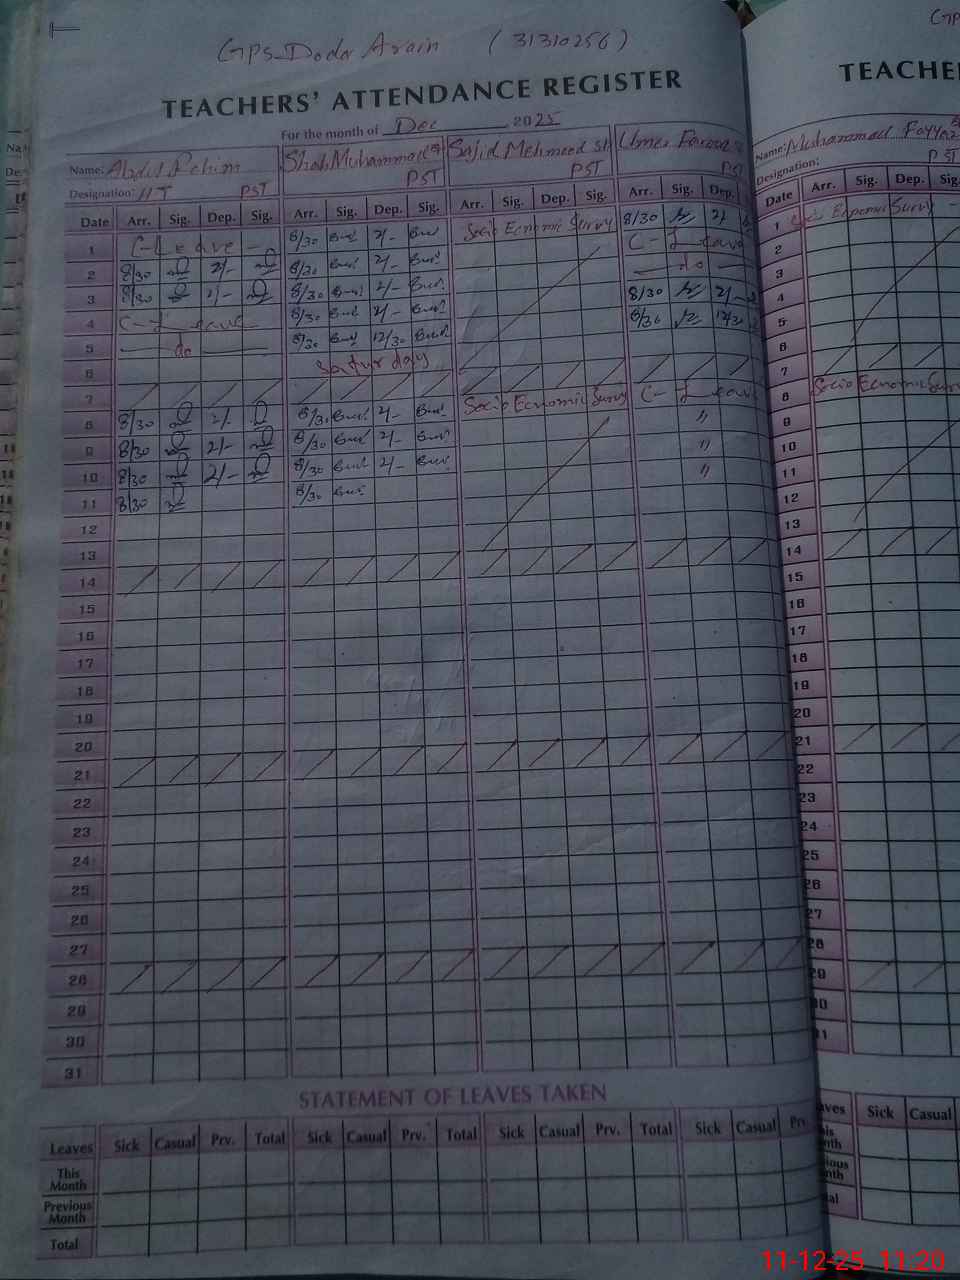 GPS Doda Arain (31310256)
TEACHERS' ATTENDANCE REGISTER
For the month of Dec 2025
Name: Abdul Rehim Shah Muhammad Sajid Mehmood Sh Umer Farooq
Designation: HT PST PST PST PST
Date Arr. Sig. Dep. Sig. Arr. Sig. Dep. Sig. Arr. Sig. Dep. Sig. Arr. Sig. Dep.
1 C-Leave 8/30 2/- Socio Ecnomic Survy 8/30 2/
2 8/30 2/- 8/30 2/- C-Leave
3 8/30 2/- 8/30 2/- do
4 C-Leave 8/30 2/- 8/30 2/-
5 do 8/30 12/30 8/30 12/30
6 Saturday
7
8 8/30 2/- 8/30 2/- Socio Ecnomic Survy C-Leave
9 8/30 2/- 8/30 2/- "
10 8/30 2/- 8/30 2/- "
11 8/30 8/30 "
12
13
14
15
16
17
18
19
20
21
22
23
24
25
26
27
28
29
30
31
STATEMENT OF LEAVES TAKEN
Leaves Sick Casual Prv. Total Sick Casual Prv. Total Sick Casual Prv. Total Sick Casual Prv
This Month
Previous Month
Total
TEACHE
Name: Muhammad Fayyaz
Designation: PST
Date Arr. Sig. Dep. Sig.
1 Socio Ecnomic Survy
2
3
4
5
6
7
8 Socio Economic Survy
9
10
11
12
13
14
15
16
17
18
19
20
21
22
23
24
25
26
27
28
29
30
31
Sick Casual
11-12-25 11:20